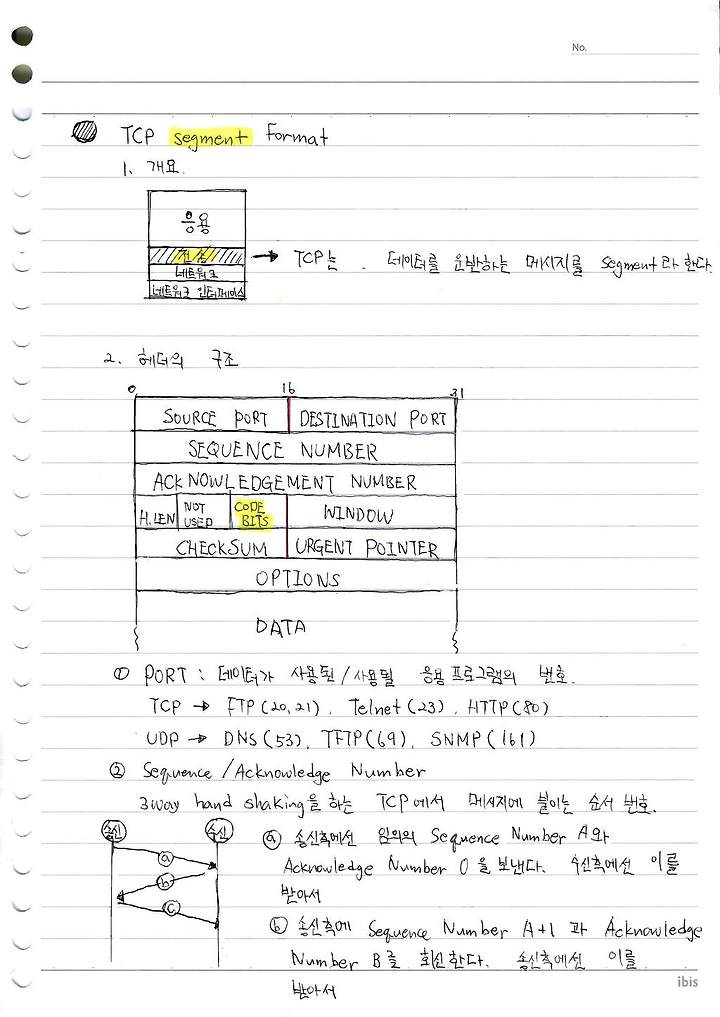 No.
TCP segment Format
1. 개요.
응용
전송
네트워크
네트워크 인터페이스
→ TCP는 . 데이터를 운반하는 메시지를 segment라 한다.
2. 헤더의 구조
0 16 31
SOURCE PORT DESTINATION PORT
SEQUENCE NUMBER
ACKNOWLEDGEMENT NUMBER
H.LEN NOT USED CODE BITS WINDOW
CHECKSUM URGENT POINTER
OPTIONS
DATA
① PORT : 데이터가 사용된/사용될 응용프로그램의 번호.
TCP → FTP(20,21). Telnet(23). HTTP(80)
UDP → DNS(53), TFTP(69), SNMP(161)
② Sequence /Acknowledge Number
3way hand shaking을 하는 TCP에서 메세지에 붙이는 순서 번호.
송신 수신
ⓐ
ⓑ
ⓒ
ⓐ 송신측에선 임의의 Sequence Number A와
Acknowledge Number 0을 보낸다. 수신측에선 이를
받아서
ⓑ 송신측에 Sequence Number A+1 과 Acknowledge
Number B를 회신한다. 송신측에선 이를
받아서
ibis